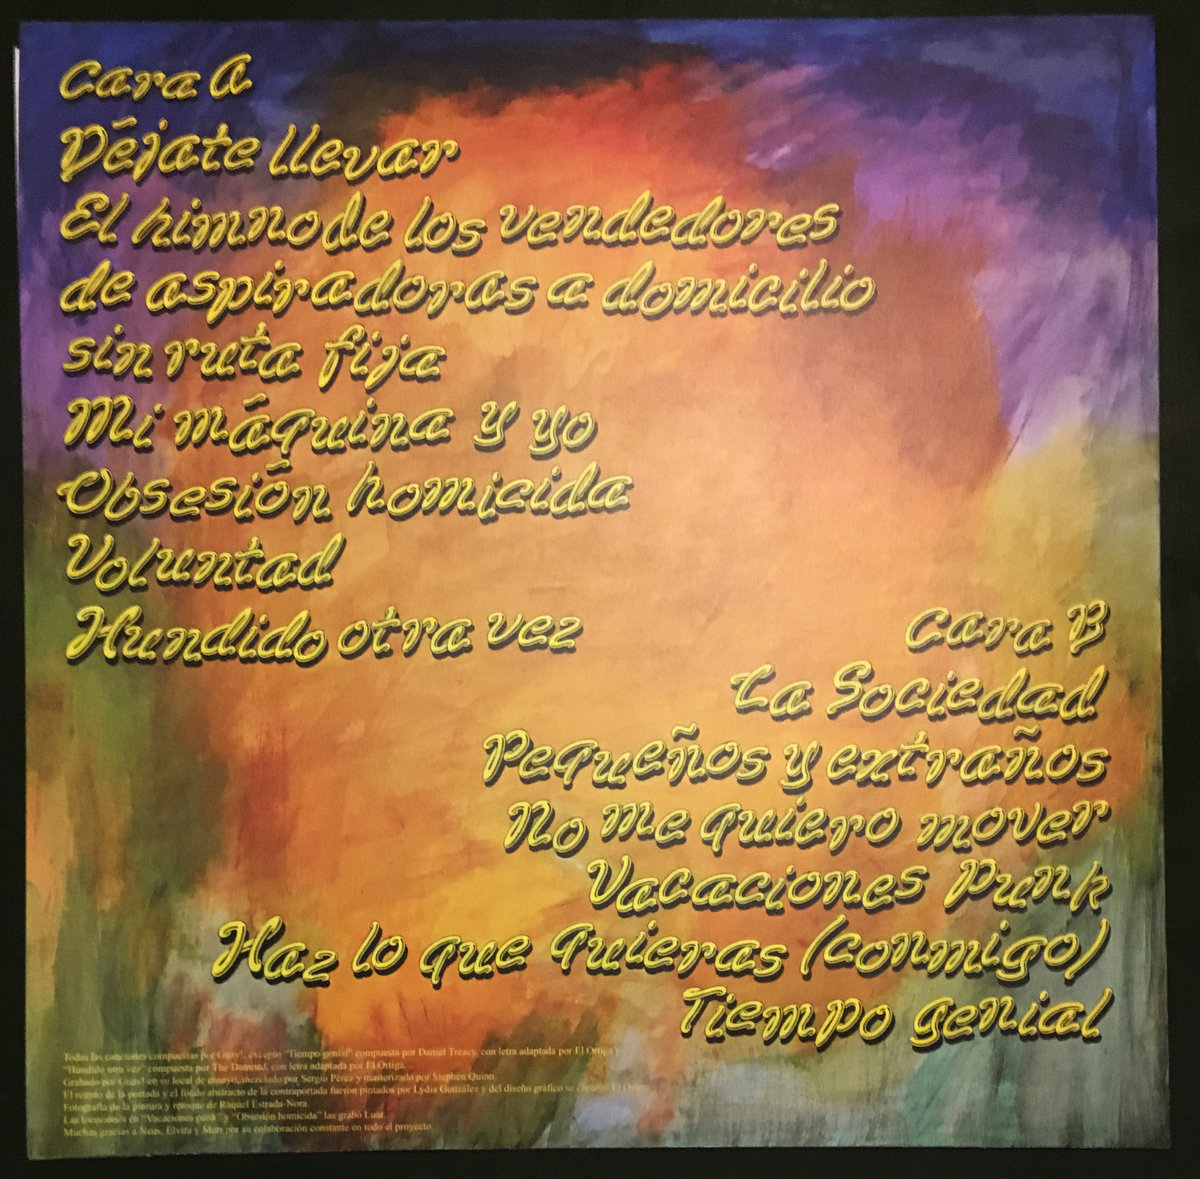 Cara A
Déjate llevar
El himno de los vendedores
de aspiradoras a domicilio
sin ruta fija
Mi máquina y yo
Obsesión homicida
Voluntad
Hundido otra vez
Cara B
La Sociedad
Pequeños y extraños
No me quiero mover
Vacaciones Punk
Haz lo que quieras (conmigo)
Tiempo genial
Todas las canciones compuestas por Guay!, excepto "Tiempo genial" compuesta por Daniel Treacy, con letra adaptada por El Ortiga y
"Hundido otra vez" compuesta por The Damned, con letra adaptada por El Ortiga.
Grabado por Guay! en su local de ensayo, mezclado por Sergio Pérez y masterizado por Stephen Quinn.
El retrato de la portada y el fondo abstracto de la contraportada fueron pintados por Lydia González y del diseño gráfico se El Ortiga
Fotografía de la pintura y retoque de Raquel Estrada-Nora.
Las locuciones en "Vacaciones punk" y "Obsesión homicida" las grabó Luar.
Muchas gracias a Neus, Elvira y por su colaboración constante en todo el proyecto.